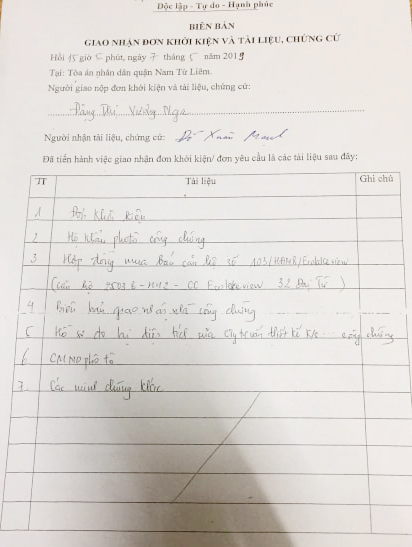 Độc lập - Tự do - Hạnh phúc
BIÊN BẢN
GIAO NHẬN ĐƠN KHỞI KIỆN VÀ TÀI LIỆU, CHỨNG CỨ
Hồi 15 giờ phút, ngày 7 tháng 5 năm 2019
Tại: Tòa án nhân dân quận Nam Từ Liêm.
Người giao nộp đơn khởi kiện và tài liệu, chứng cứ:
Đặng Thị Nga
Người nhận tài liệu, chứng cứ: Đỗ Xuân Mạnh
Đã tiến hành việc giao nhận đơn khởi kiện/ đơn yêu cầu là các tài liệu sau đây:
TT Tài liệu Ghi chú
1 Đơn khởi kiện
2 Hộ khẩu photo công chứng
3 Hợp đồng mua bán căn hộ số 103/HĐMB/Ecolakeview
(Căn hộ 2503B - HH2 - CC Ecolakeview 32 Đại Từ)
4 Biên bản giao nhận nhà công chứng
5 Hồ sơ đo lại diện tích của Cty tư vấn thiết kế công chứng
6 CMND phô tô
7. Các minh chứng khác